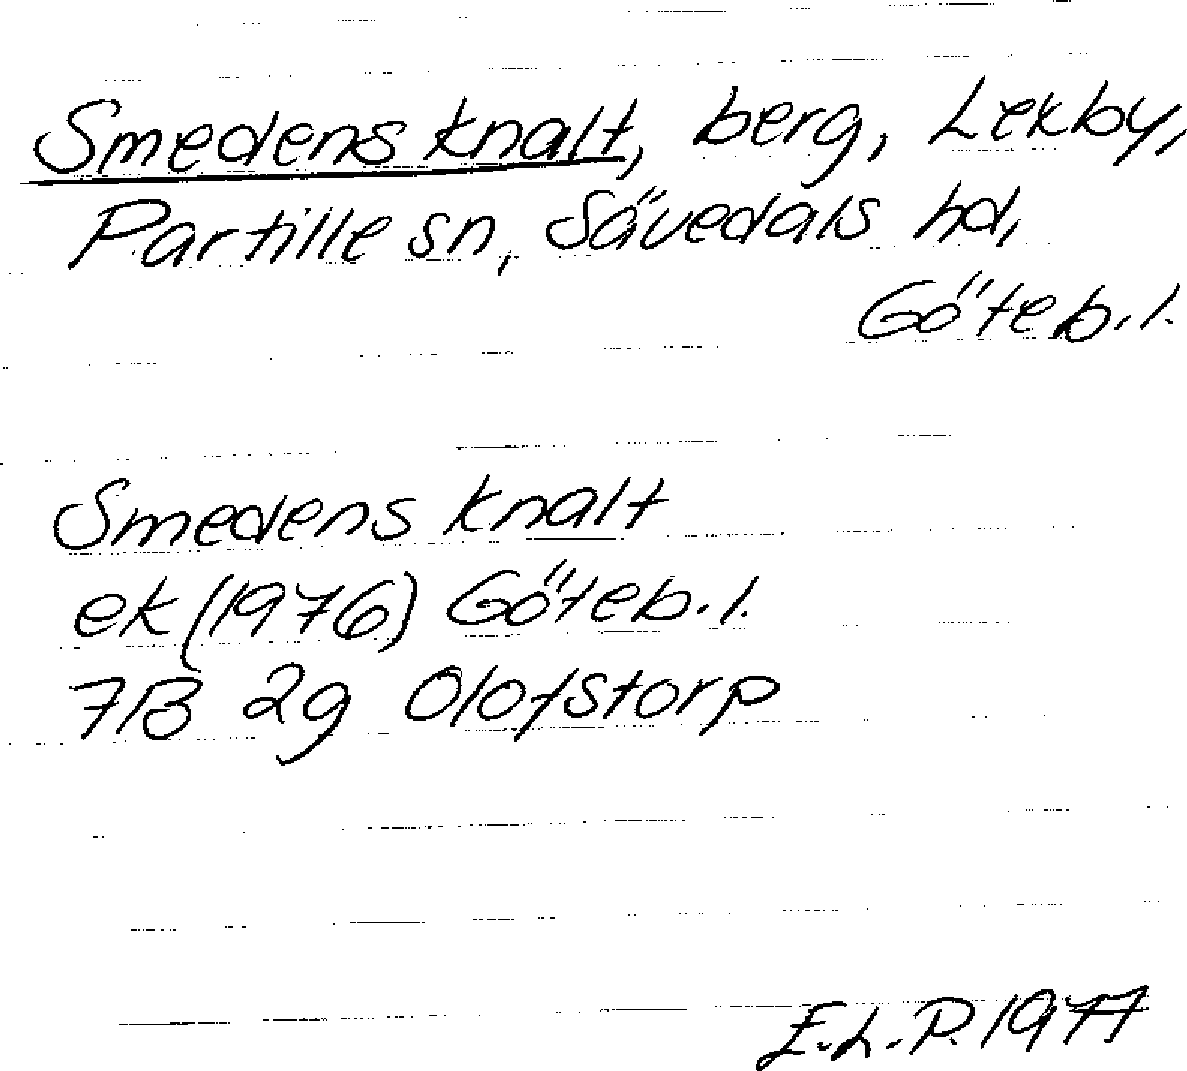 Smedens knalt, berg, Lekby,
Partille sn, Sävedals hd,
Göteb.l.
Smedens knalt
ek (1976) Göteb.l.
7B 2g Olofstorp
E.L.P. 1977